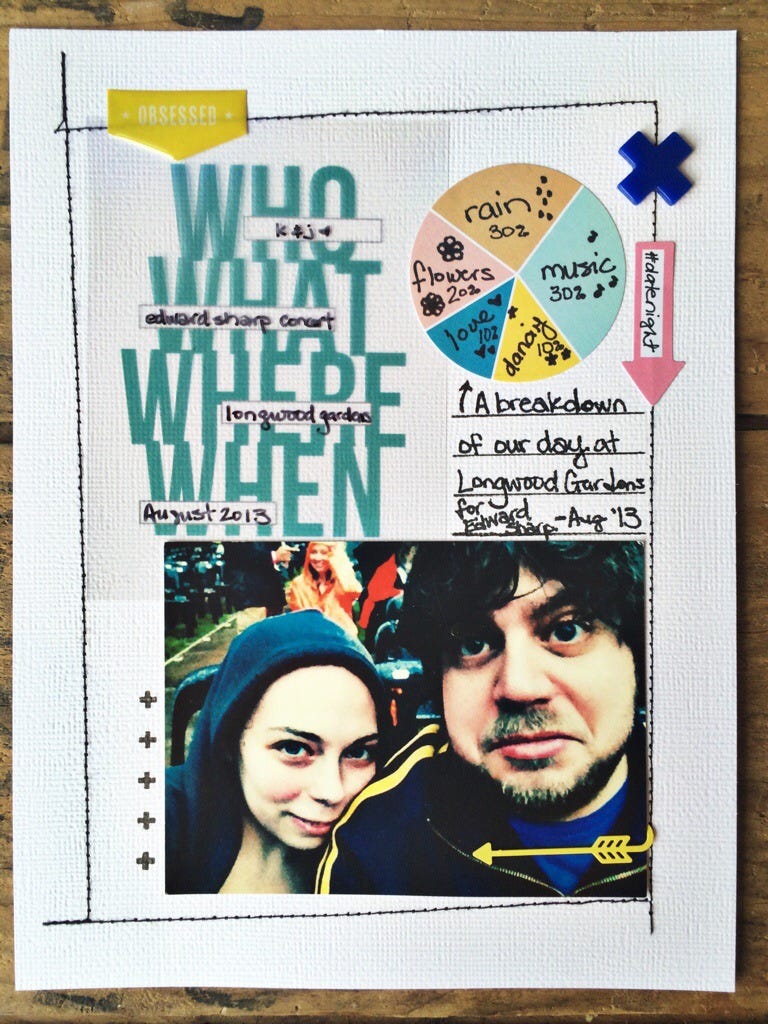 OBSESSED
WHO
k & j
WHAT
edward sharp concert
WHERE
longwood gardens
WHEN
August 2013
rain
30%
music
30%
flowers
20%
love
10%
dancing
10%
#datenight
A breakdown
of our day at
Longwood Gardens
for Edward Sharp - Aug '13